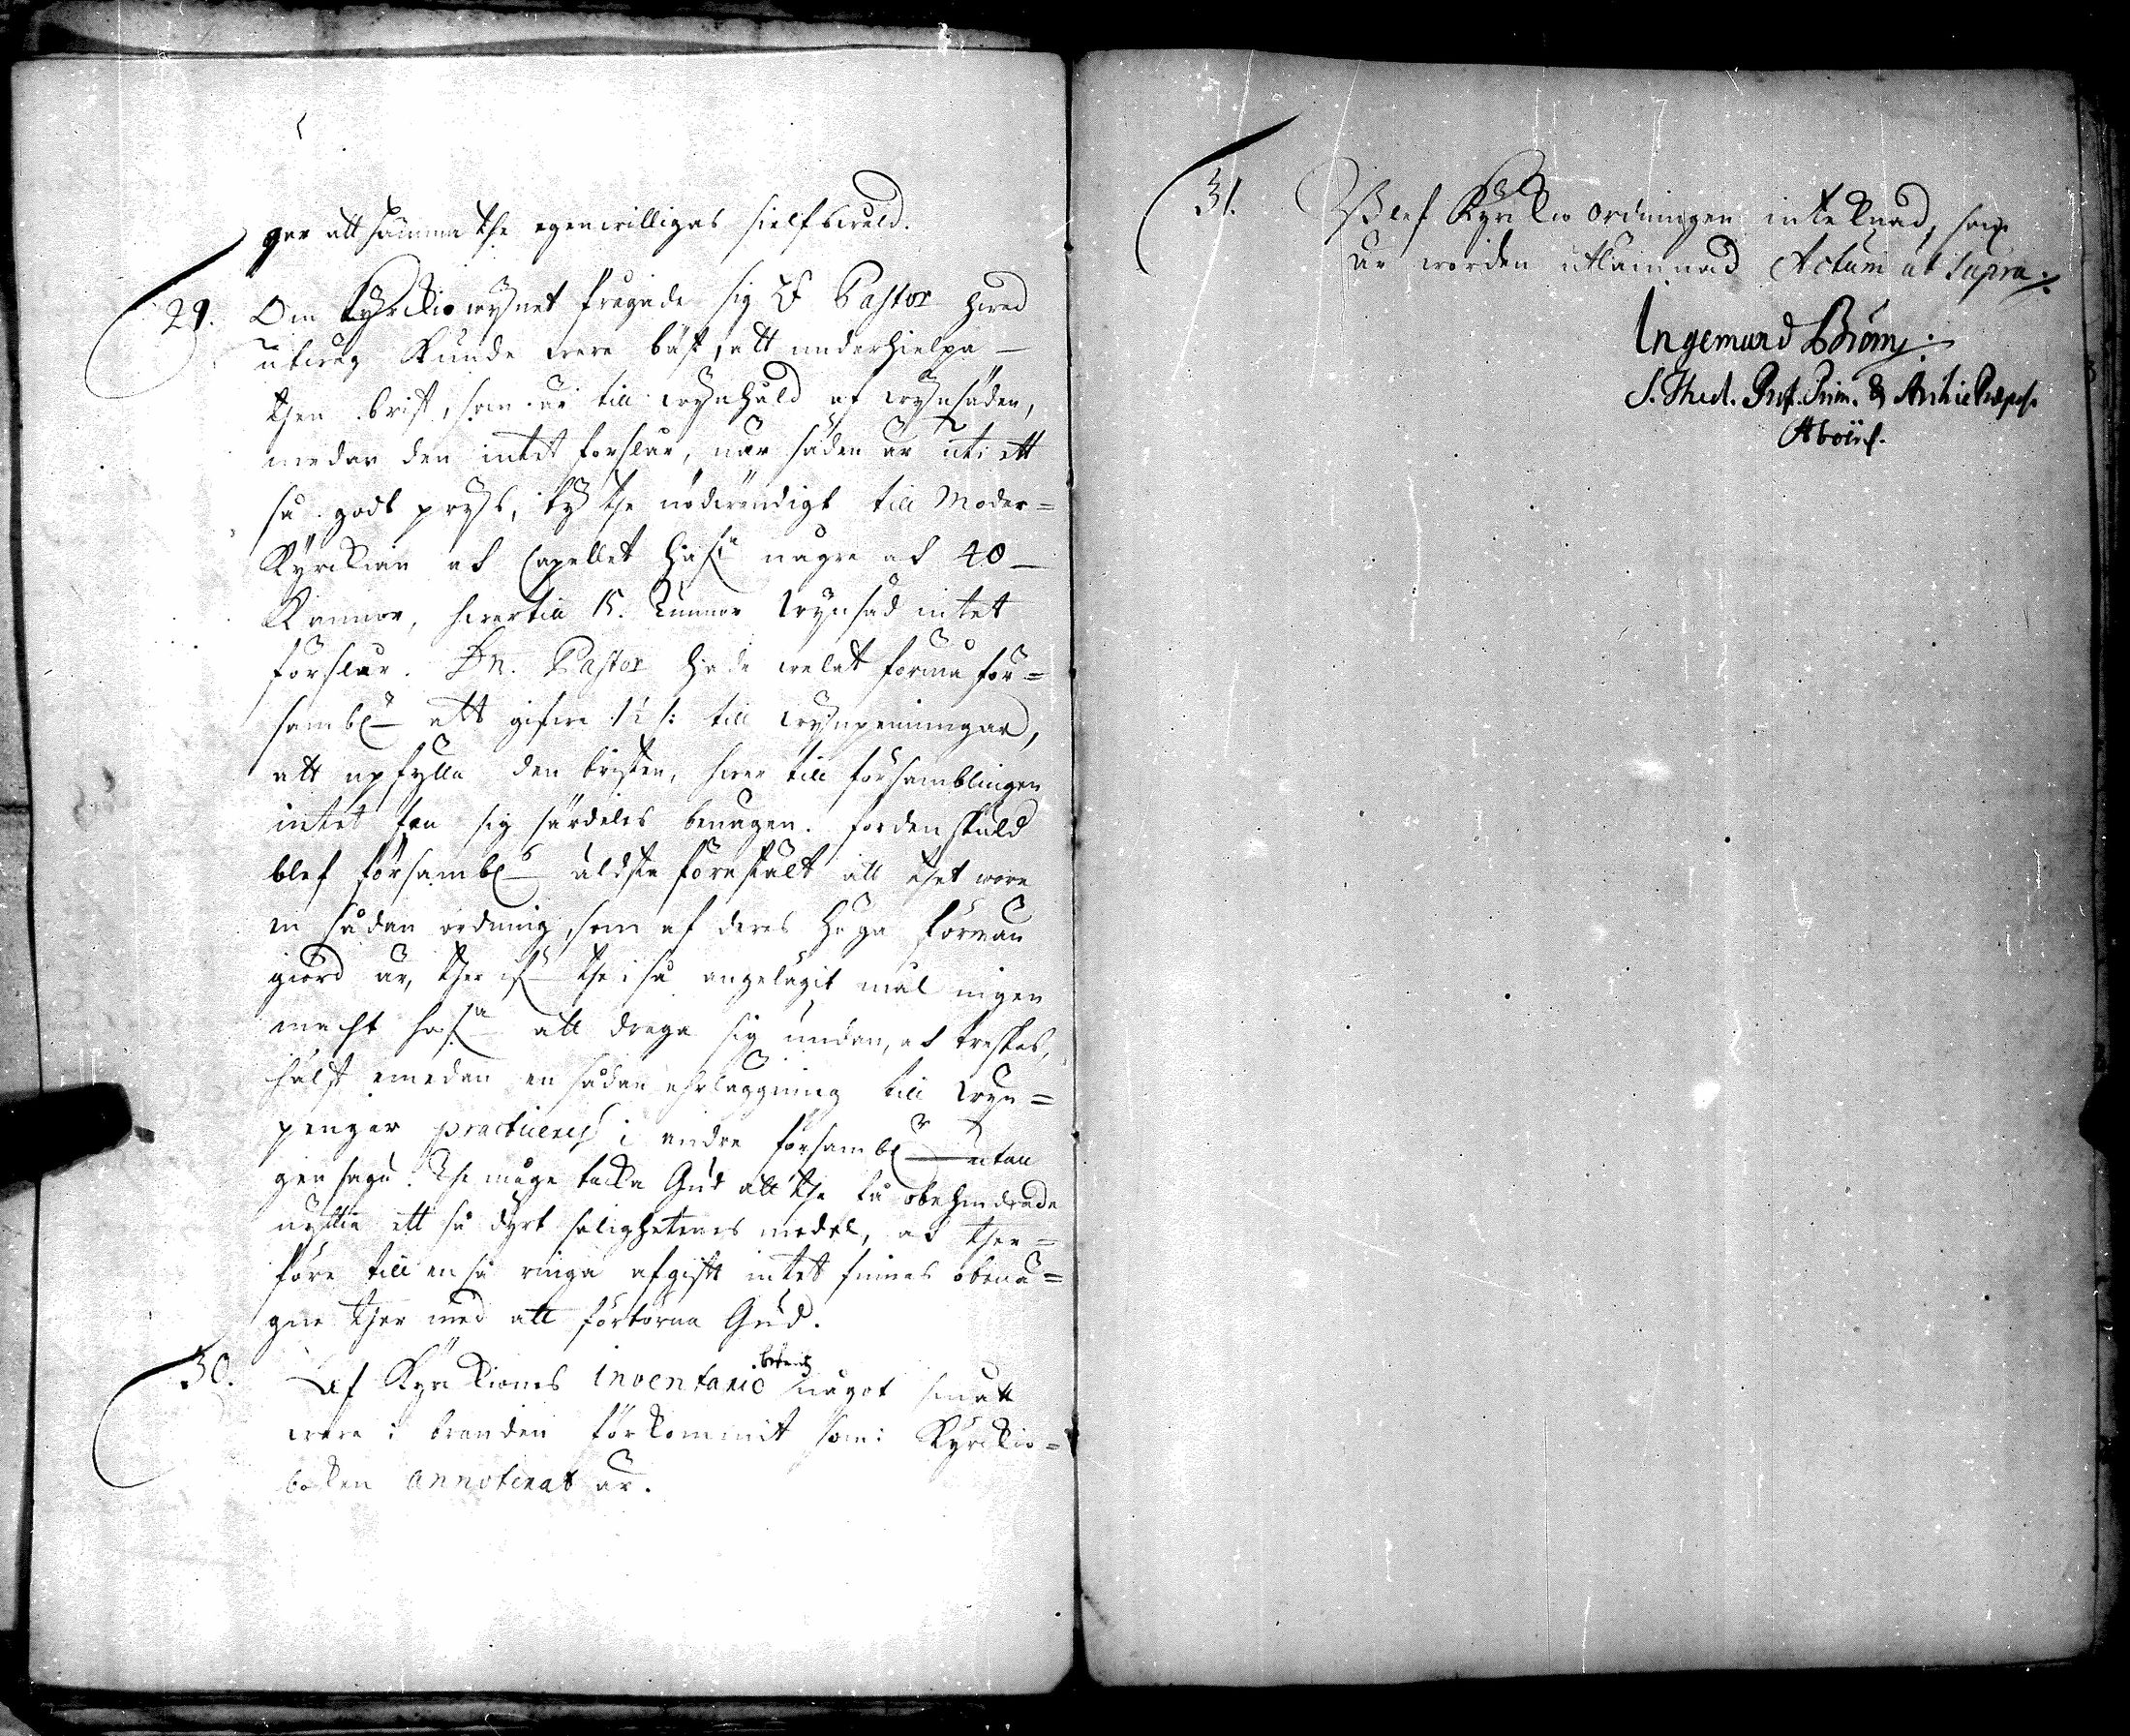 ger att hämma the egenwilligas sielfswåld.
29. Om Kyrkiowynet frågade sig H Pastor hwad
utwäg kunde wara bäst, att underhielpa
then brist, som är till wynhåld af wynsäden,
medan den intet förslår, när säden är uti ett
så godt prys, ty the nödwendigt till Moder=
Kyrkian at Capellet hafa någre at 40
Kannor, hwartia 15. Tunnor wynsäd intet
förslår. Dn. Pastor hade welat förmå för=
sambl att gifwa 1/2 s: till wynpenningar,
att upfylla den bristen, hwar till församblingen
intet fan sig särdeles benägen. fordenskuld
blef försambls äldste förestält att thet wore
en sådan ordning, som af deras höga förmän
giord är, ther if the i så angelägit mål ingen
macht hafa att draga sig undan, at treskas,
hälst emedan en sådan ehrläggning till wyn=
pengar practiceres i andre försambl utan
gensägn. The måge tacka Gud att the få obehindrade
nyttia ett så dyrt salighetenes medel, at ther=
före till en så ringa afgift intet finnas obenä=
gne ther med att förtörna Gud.
30. Af Kyrkiones inventario bekants något smått
wara i branden förkommit som i Kyrkio=
boken annoterat är.
31. Blef Kyrkio ordningen inteknad, som
är worden utlämnad Actum ut supra
Ingemund Bröms
S. Theol. Prof. Prim. & Archie Præpos.
Aboens.